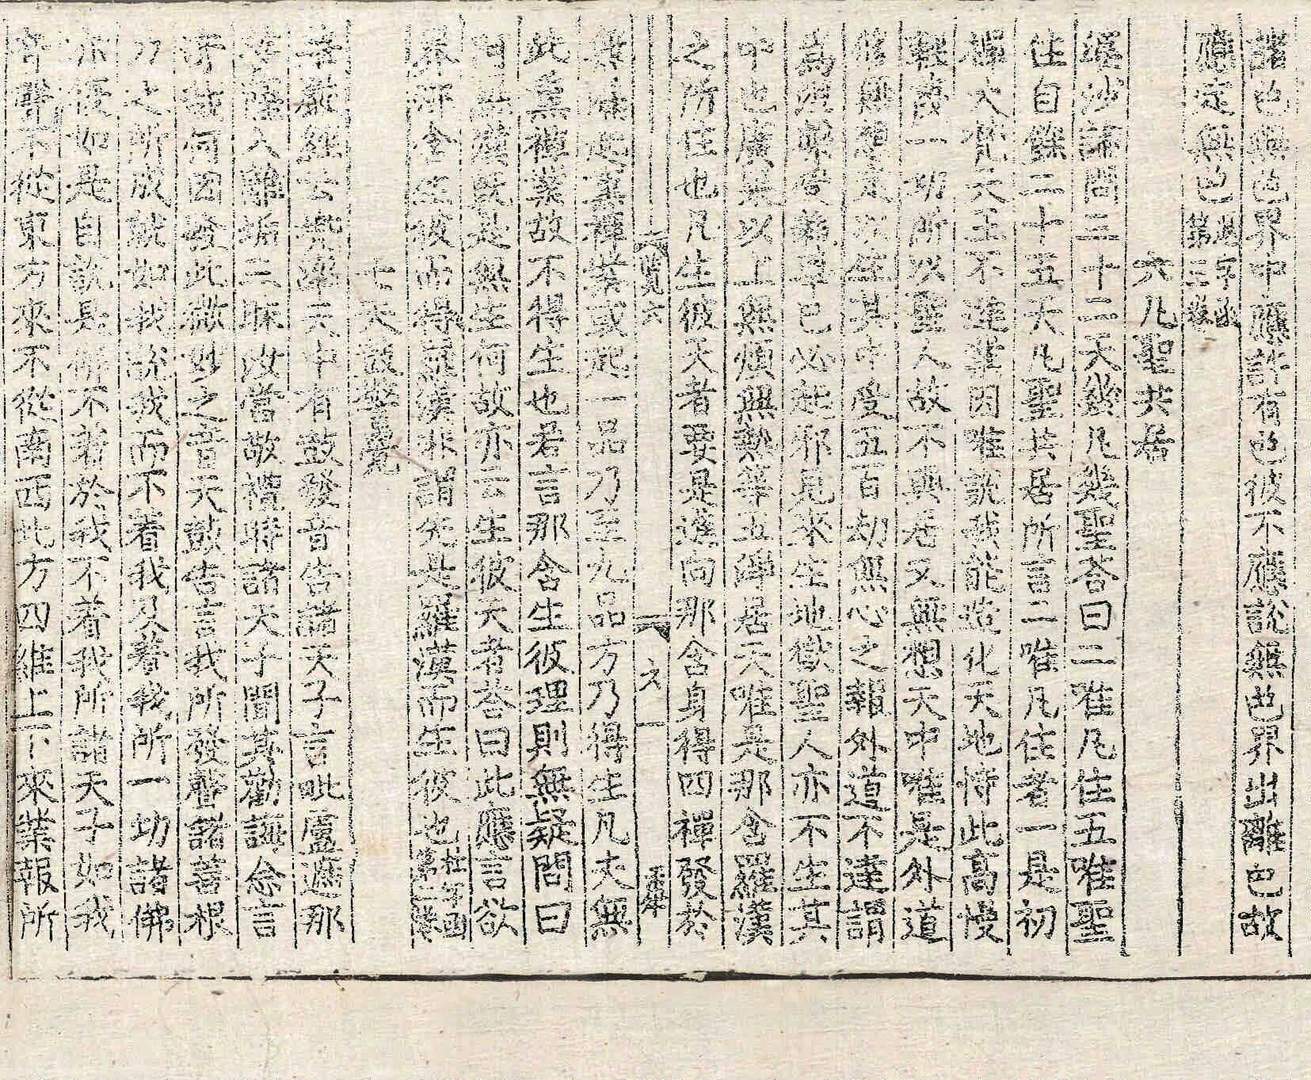 諸色無色界中應許有色彼不應說無色界出離色故
應定無色
第三卷
六凡聖共居
婆沙論問三十二天幾凡幾聖答曰二唯凡住五唯聖
住自餘二十五天凡聖共居所言二唯凡住者一是初
禪大梵天王不達業因唯說我能造化天地恃此高慢
輕蔑一切所以聖人故不與居又無想天中唯是外道
修無想定以生其中受五百劫無心之報外道不達謂
為涅槃受報畢已必起邪見來生地獄聖人亦不生其
中也廣果以上無煩無熱等五淨居天唯是那含羅漢
之所住也凡生彼天者要是進向那含身得四禪發於
無漏起熏禪業或起一品乃至九品方乃得生凡夫無
此熏禪業故不得生也若言那含生彼理則無疑問曰
阿羅漢既是無生何故亦云生彼天者答曰此應言欲
界那含生彼而得羅漢非謂先是羅漢而生彼也
七天鼓警覺
華嚴經云兜率天中有鼓發音告諸天子言毗盧遮那
菩薩入離垢三昧汝當敬禮時諸天子聞其勸誨念言
所以何因發此微妙之音天鼓告言我所發聲諸善根
力之所成就如我說我而不着我及著我所一切諸佛
亦復如是自說是佛不著於我不着我所諸天子如我
音聲不從東方來不從南西北方四維上下來業報所